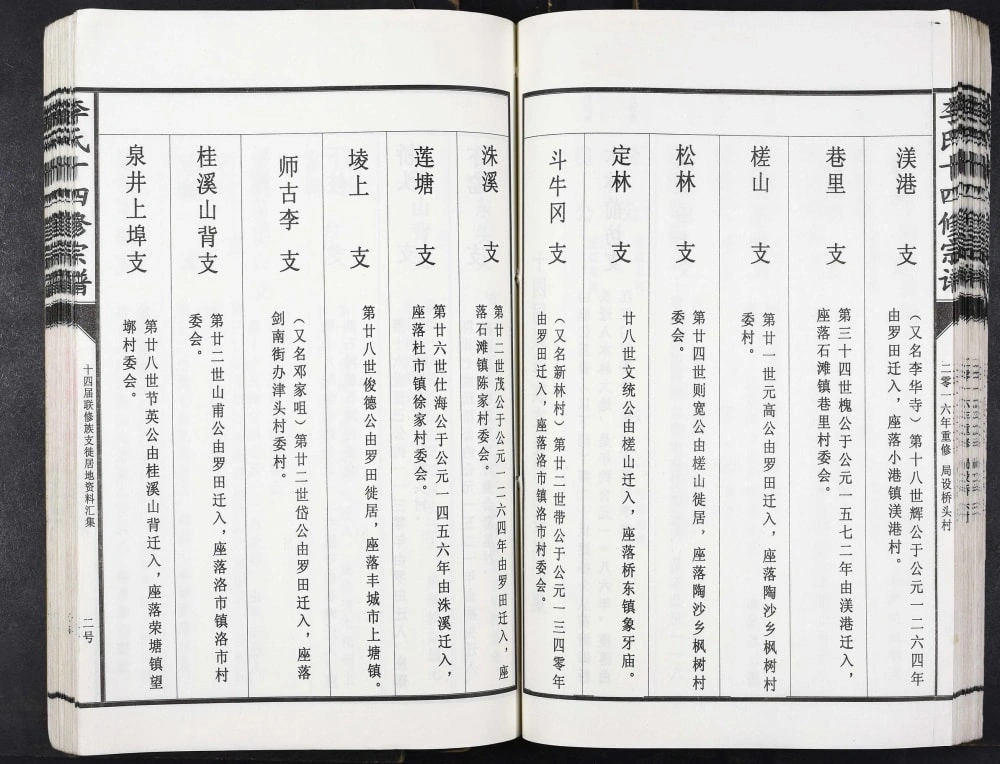 李氏十四修宗谱
二零一六年重修 局设桥头村
渼港 支
（又名李华寺）第十八世辉公于公元一二六四年
由罗田迁入，座落小港镇渼港村。
巷里 支
第三十四世槐公于公元一五七二年由渼港迁入，
座落石滩镇巷里村委会。
槎山 支
第廿一世元高公由罗田迁入，座落陶沙乡枫树村
委村。
松林 支
第廿四世则宽公由槎山徙居，座落陶沙乡枫树村
委会。
定林 支
廿八世文统公由槎山迁入，座落桥东镇象牙庙。
斗牛冈 支
（又名新林村）第廿二世带公于公元一三四零年
由罗田迁入，座落洛市镇洛市村委会。
洙溪 支
第廿二世茂公于公元一二六四年由罗田迁入，座
落石滩镇陈家村委会。
莲塘 支
第廿六世仕海公于公元一四五六年由洙溪迁入，
座落杜市镇徐家村委会。
堎上 支
第廿八世俊德公由罗田徙居，座落丰城市上塘镇。
师古李 支
（又名邓家咀）第廿二世岱公由罗田迁入，座落
剑南街办津头村委村。
桂溪山背支
第廿二世山甫公由罗田迁入，座落洛市镇洛市村
委会。
泉井上埠支
第廿八世节英公由桂溪山背迁入，座落荣塘镇望
墎村委会。
李氏十四修宗谱
十四届联修族支徙居地资料汇集
二号